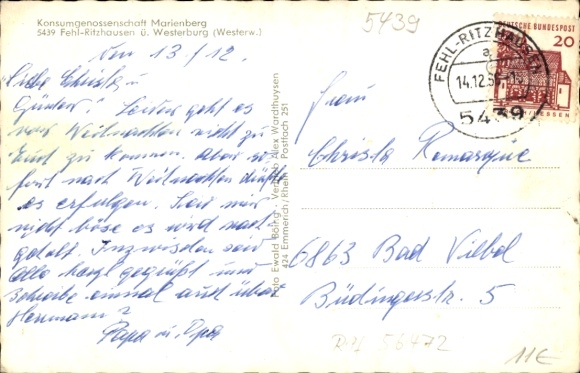 Konsumgenossenschaft Marienberg
5439 Fehl-Ritzhausen ü. Westerburg (Westerw.)
5439
DEUTSCHE BUNDESPOST
20
FEHL-RITZHAUSEN
a
14.12.
5439
13/12.
Liebe Christa u
Günter! Leider geht es
vor Weihnachten nicht zu
Euch zu kommen. Aber so-
fort nach Weihnachten dürfte
es erfolgen. Seid mir
nicht böse es wird nach-
geholt. Inzwischen seid
Alle herzl gegrüßt und
Schreibe einmal auch über
Hermann?
Papa u. Opa
Foto Ewald Böing - Vertrieb Alex Wardthuysen
424 Emmerich/Rhein - Postfach 251
Frau
Christa Remarque
6863 Bad Vilbel
Büdingerstr. 5
56472
11€